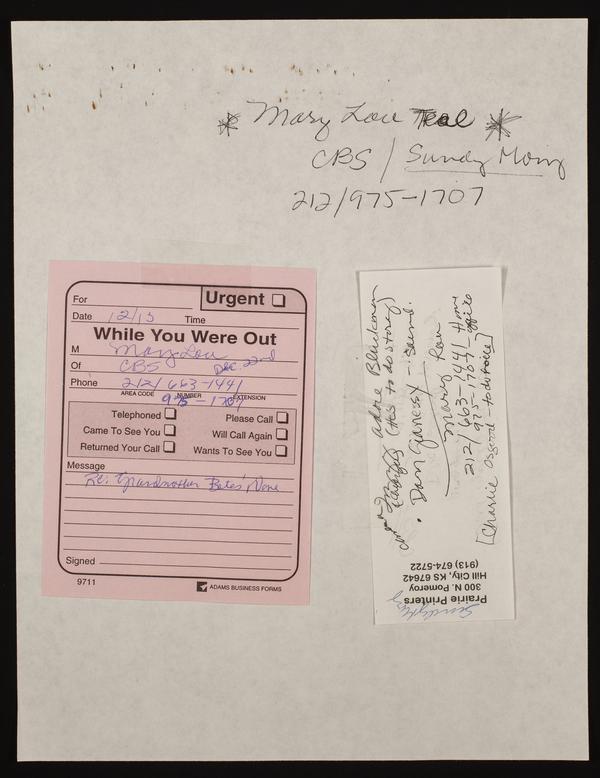 * Mary Lou Teal *
CBS / Sundy Morng
212/975-1707
For
Urgent
Date 12/15 Time
While You Were Out
M Mary Lou
Of CBS Dec. 22nd
Phone 212/663-1441
AREA CODE NUMBER EXTENSION
975-1707
Telephoned Please Call
Came To See You Will Call Again
Returned Your Call Wants To See You
Message
Re: Grandmother Bates' None
Signed
9711 ADAMS BUSINESS FORMS
(to do story)
Dan - Sound.
Mary Lou
212/663-1441 - Home
975-1707 - office
[Charlie Osgood - to do voice]
Prairie Printers
300 N. Pomeroy
Hill City, KS 67642
(913) 674-5722